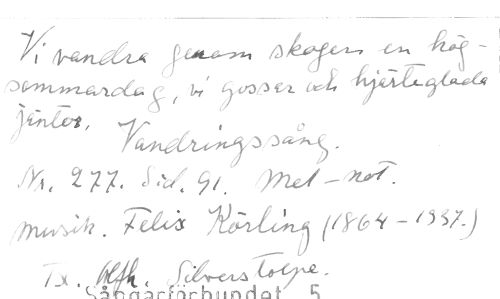 Vi vandra genom skogen en hög-
sommardag, vi gossar och hjärteglada
jäntor. Vandringssång.
Nr. 277. Sid. 91. Mel-not.
Musik. Felix Körling (1864-1937.)
Tx. Silverstolpe.
Sångarförbundet 5